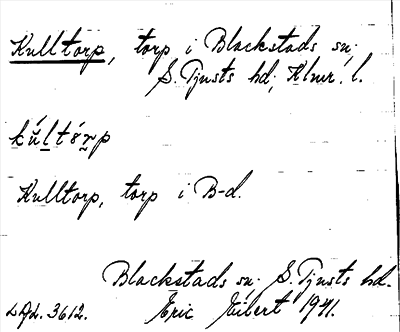 Kulltorp, torp i Blackstads sn.
S. Tjusts hd; Klmr. l.
kúltórp
Kulltorp, torp i B-d.
Blackstads sn. S. Tjusts hd.
Eric Eibert 1941.